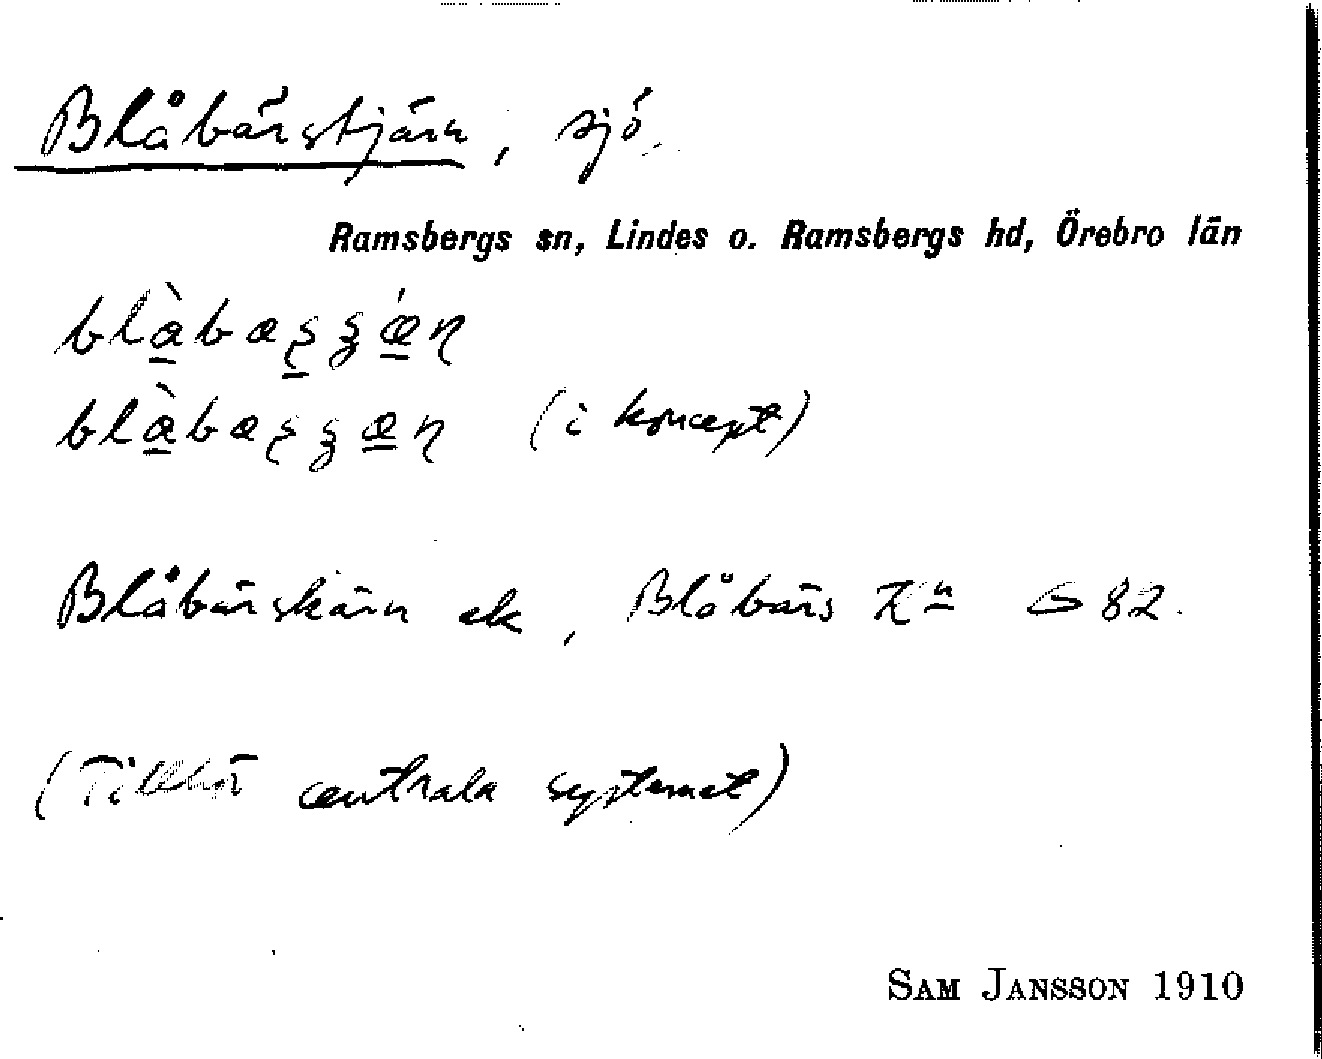 Blåbärstjärn, sjö.
Ramsbergs sn, Lindes o. Ramsbergs hd, Örebro län
(i koncept)
Blåbärskärn ek, Blåbärs Kn G 82.
(Tillhör centrala systemet)
SAM JANSSON 1910